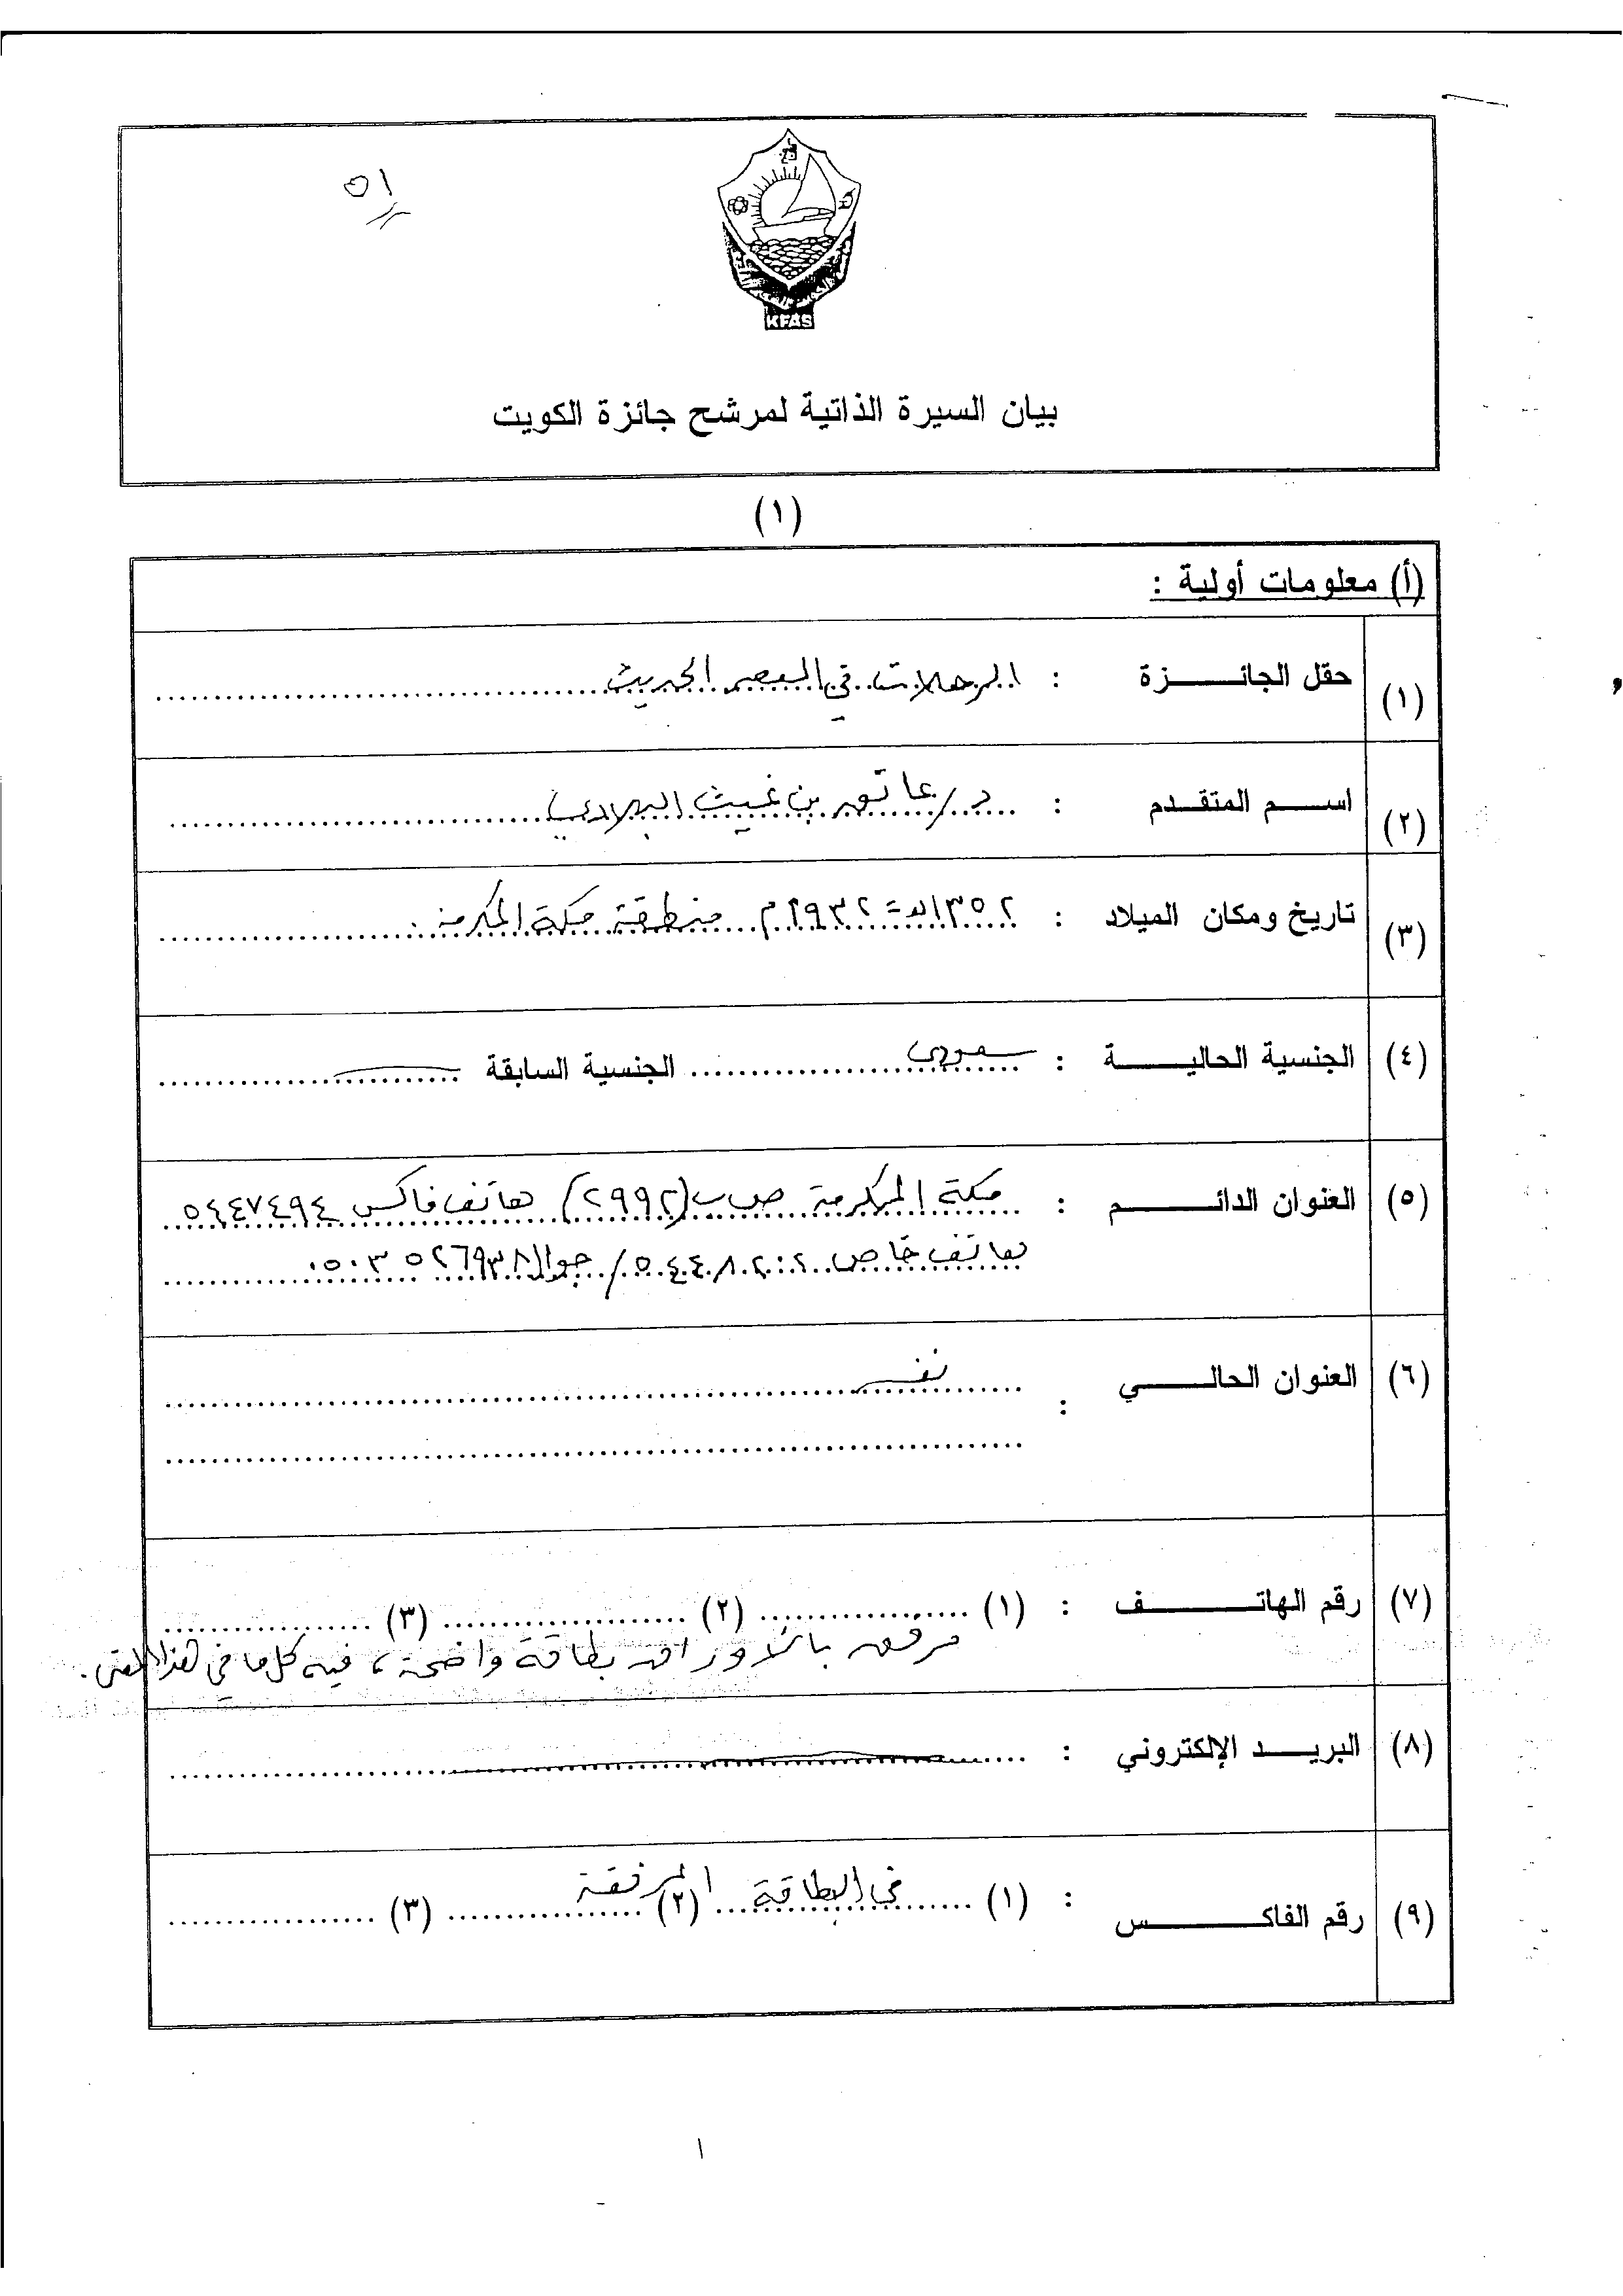 ٥١
KFAS
بيان السيرة الذاتية لمرشح جائزة الكويت
(١)
(أ) معلومات أولية :
(١) حقل الجائزة : الرحلات في العصر الحديث
(٢) اسم المتقدم : د/عاتق بن غيث البلادي
(٣) تاريخ ومكان الميلاد : ١٣٥٢هـ = ١٩٣٢م منطقة مكة المكرمة .
(٤) الجنسية الحالية : سعودي الجنسية السابقة
(٥) العنوان الدائم : مكة المكرمة ص ب (٢٩٩٢) هاتف فاكس ٥٤٤٧٤٩٤
هاتف خاص ٥٤٤٨٢٠٢ / جوال ٠٥٠٣٥٢٦٩٣٨
(٦) العنوان الحالي : نفسه
(٧) رقم الهاتف : (١) (٢) (٣)
مرفق بالأوراق بطاقة واضحة ، فيه كل ما في هذا المعنى .
(٨) البريد الإلكتروني :
(٩) رقم الفاكس : (١) في البطاقة المرفقة (٢) (٣)
١